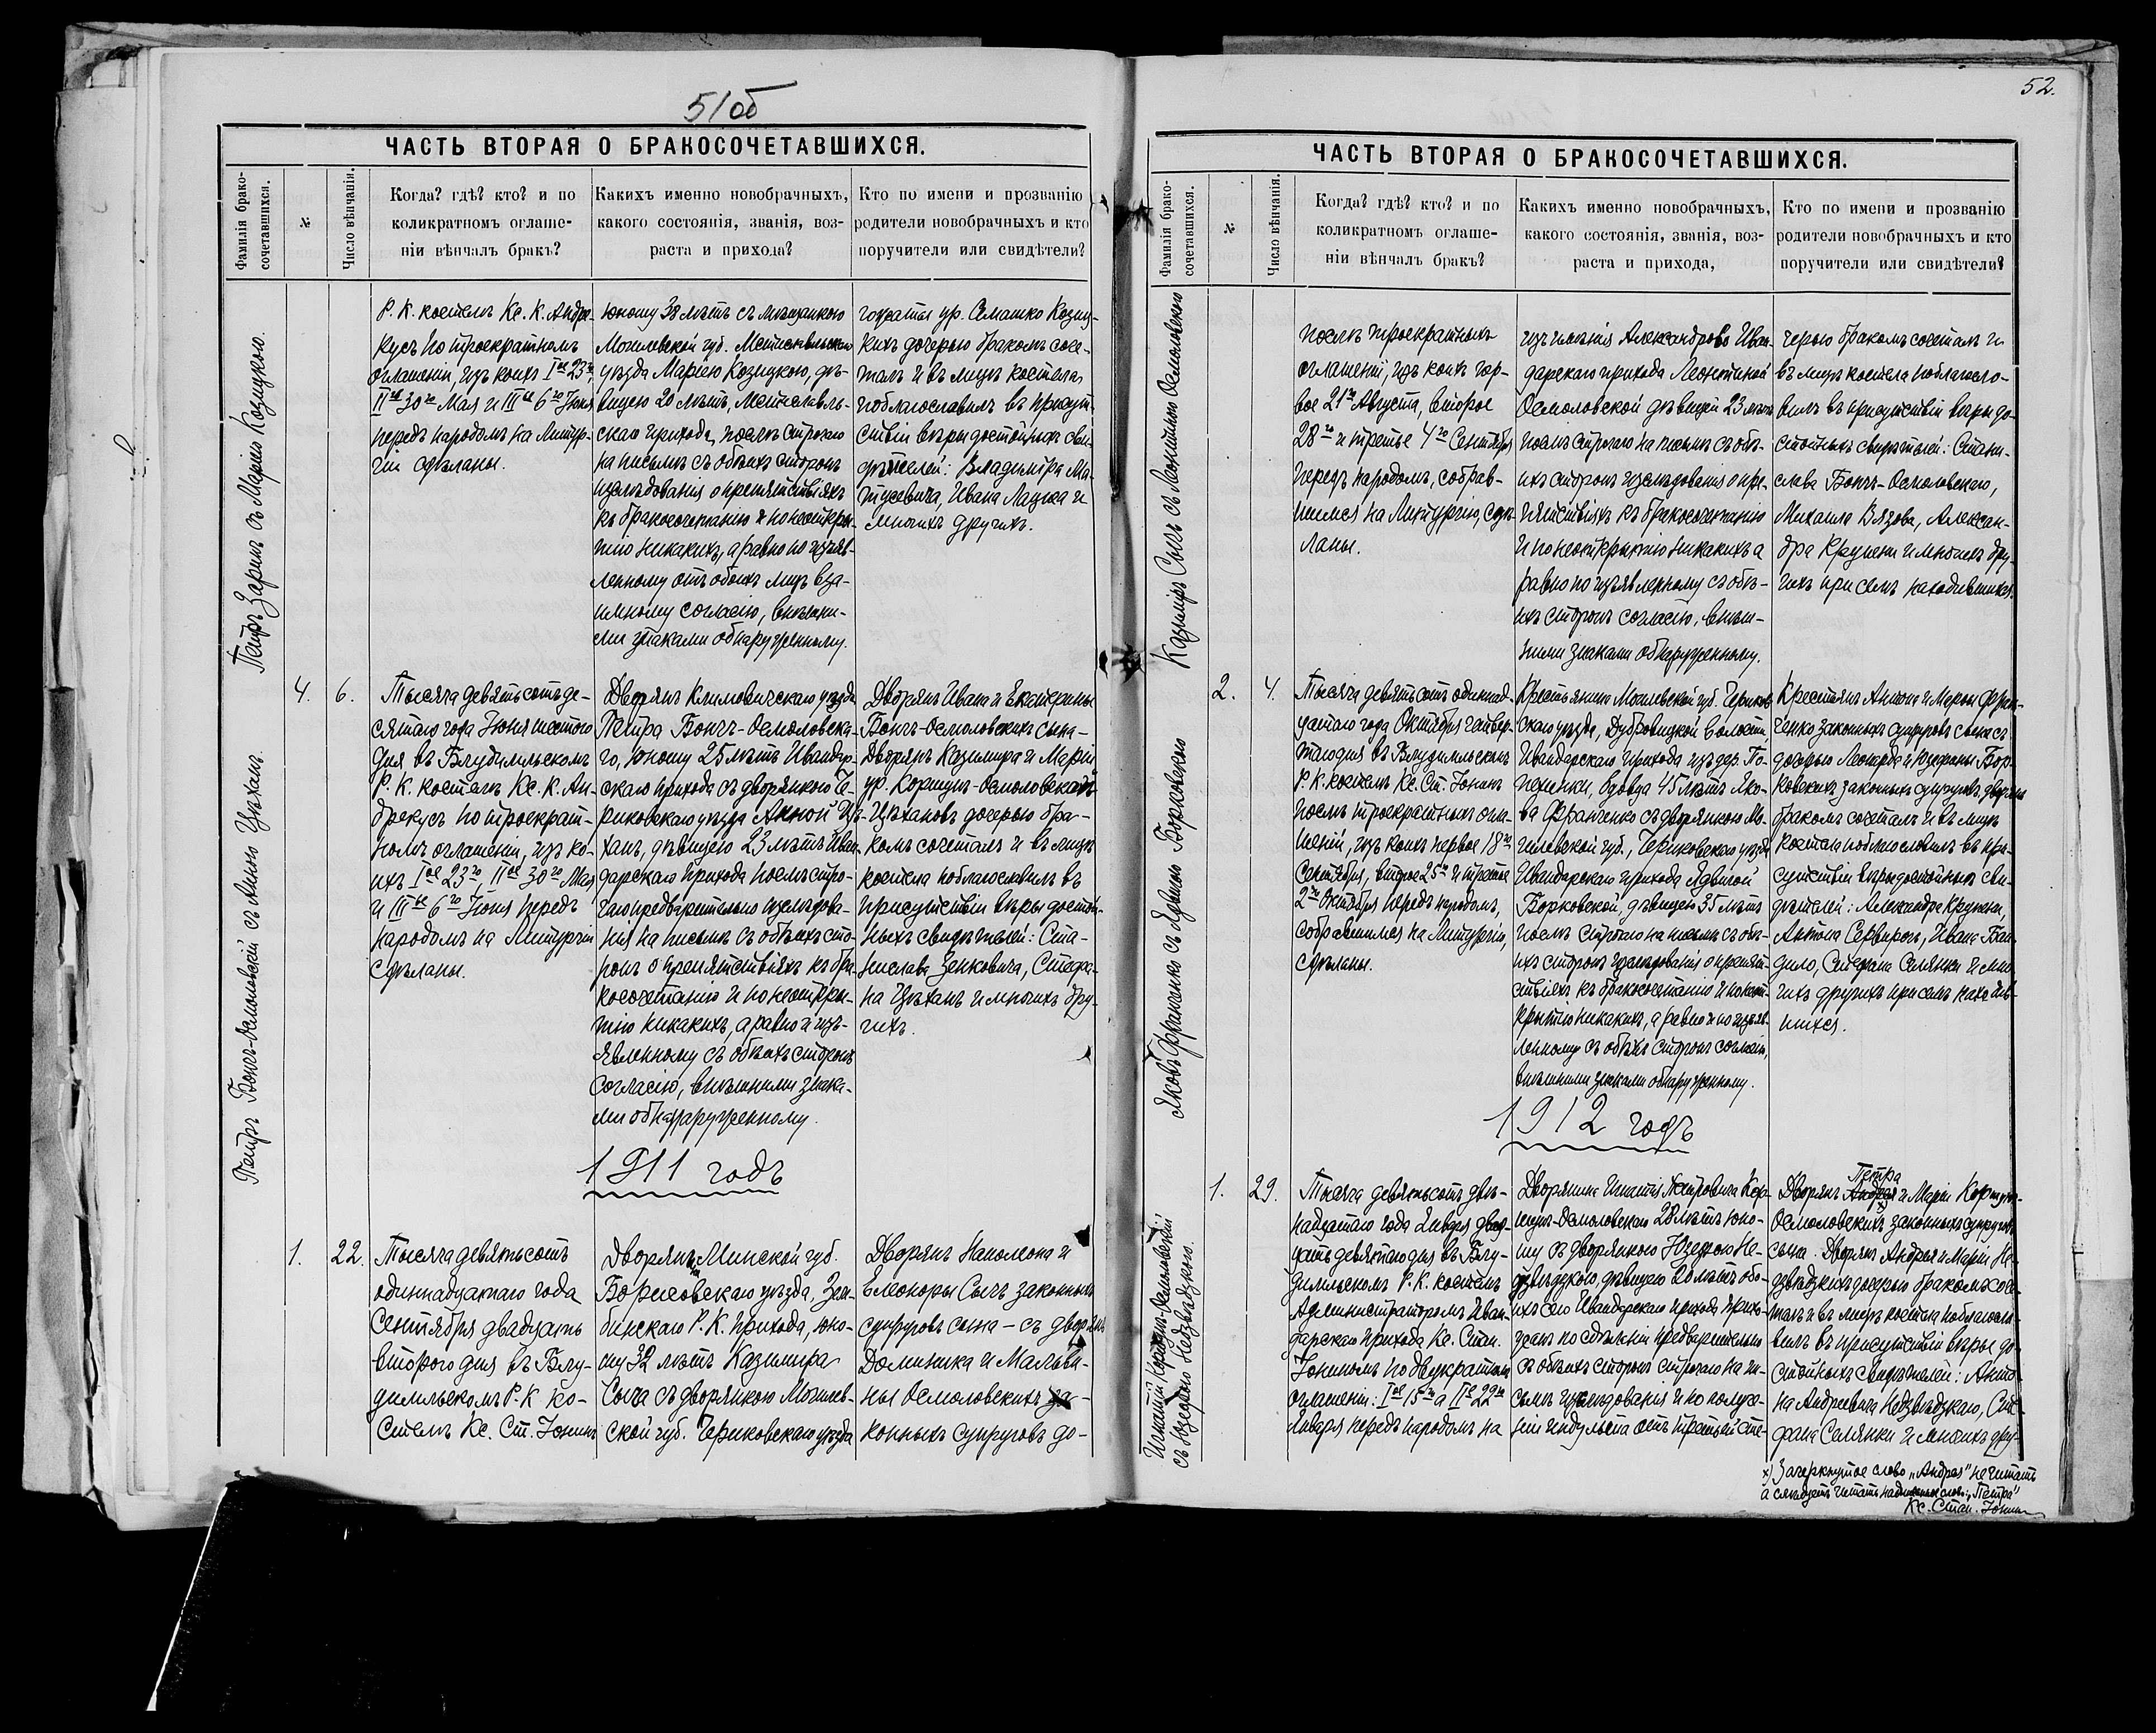 51об
ЧАСТЬ ВТОРАЯ О БРАКОСОЧЕТАВШИХСЯ.
Фамилія брако-
сочетавшихся.
№
Число вѣнчанія.
Когда? гдѣ? кто? и по
коликратномъ оглаше-
ніи вѣнчалъ бракъ?
Какихъ именно новобрачныхъ,
какого состоянія, званія, воз-
раста и прихода?
Кто по имени и прозванію
родители новобрачныхъ и кто
поручители или свидѣтели?
Петръ Заринъ съ Маріею Козицкою.
Р. К. костелѣ Кс. К. Андре-
кусъ по троекратномъ
оглашеніи, изъ коихъ Iое 23го,
IIое 30го Мая и IIIье 6го Іюня
передъ народомъ на Литур-
гіи сдѣланы.
юношу 38 лѣтъ съ мѣщанкою
Могилевской губ. Мстиславльскаго
уѣзда Маріею Козицкою, дѣ-
вицею 20 лѣтъ, Мстиславль-
скаго прихода, послѣ строгаго
на письмѣ съ обѣихъ сторонъ
изслѣдованія о препятствіяхъ
къ бракосочетанію и по неоткры-
тію никакихъ, а равно по изъяв-
ленному отъ обоихъ лицъ вза-
имному согласію, внѣшни-
ми знаками обнаруженному.
гораты ур. Семашко Козиц-
кихъ дочерью бракомъ соче-
талъ и въ лицѣ костела
поблагословилъ въ присут-
ствіи вѣры достойныхъ сви-
дѣтелей: Владиміра Ма-
тусевича, Ивана Ладика и
многихъ другихъ.
Петръ Бончъ-Осмоловскій съ Анною Цѣханъ.
4.
6.
Тысяча девятьсотъ де-
сятаго года Іюня шестого
дня въ Блудимльскомъ
Р. К. костелѣ Кс. К. Ан-
дрекусъ по троекрат-
номъ оглашеніи, изъ ко-
ихъ Iое 23го, IIое 30го Мая
и IIIье 6го Іюня передъ
народомъ на Литургіи
сдѣланы.
Дворянъ Климовичскаго уѣзда
Петра Бончъ-Осмоловска-
го, юношу 25 лѣтъ Ивандар-
скаго прихода съ дворянкою Че-
риковскаго уѣзда Анной Цѣ-
ханъ, дѣвицею 23 лѣтъ Иван-
дарскаго прихода послѣ стро-
гаго предварительно изслѣдова-
нія на письмѣ съ обѣихъ сто-
ронъ о препятствіяхъ къ бра-
косочетанію и по неоткры-
тію никакихъ, а равно и изъ-
явленному съ обѣихъ сторонъ
согласію, внѣшними знака-
ми обнаруженному.
Дворянъ Ивана и Екатерины
Бончъ-Осмоловскихъ сына-
Дворянъ Казимира и Маріи
ур. Коршунъ-Осмоловская
Цѣхановъ дочерью бра-
комъ сочеталъ и въ лицѣ
костела поблагословилъ въ
присутствіи вѣры достой-
ныхъ свидѣтелей: Ста-
нислава Зенковича, Стефа-
на Цѣханъ и многихъ дру-
гихъ.
1911 годъ
1.
22.
Тысяча девятьсотъ
одиннадцатаго года
Сентября двадцать
второго дня въ Блу-
димльскомъ Р. К. ко-
стелѣ Кс. Ст. Іонинъ
Дворянъ Минской губ.
Борисовскаго уѣзда, Зем-
бинскаго Р. К. прихода, юно-
шу 32 лѣтъ Казимира
Сыча съ дворянкою Могилев-
ской губ. Чериковскаго уѣзда
Дворянъ Наполеона и
Елеоноры Сычъ законныхъ
супруговъ сына - съ дворянъ
Доминика и Мальви-
ны Осмоловскихъ за-
конныхъ супруговъ до-
52.
ЧАСТЬ ВТОРАЯ О БРАКОСОЧЕТАВШИХСЯ.
Фамилія брако-
сочетавшихся.
№
Число вѣнчанія.
Когда? гдѣ? кто? и по
коликратномъ оглаше-
ніи вѣнчалъ бракъ?
Какихъ именно новобрачныхъ,
какого состоянія, званія, воз-
раста и прихода,
Кто по имени и прозванію
родители новобрачныхъ и кто
поручители или свидѣтели?
Казимиръ Сычъ съ Леонтиною Осмоловскою
послѣ троекратныхъ
оглашеній, изъ коихъ пер-
вое 21го Августа, второе
28го и третье 4го Сентября
передъ народомъ, собрав-
шимся на Литургію, сдѣ-
ланы.
изъ имѣнія Александрово Иван-
дарскаго прихода Леонтиной
Осмоловской дѣвицей 23 лѣтъ
послѣ строгаго на письмѣ съ обѣ-
ихъ сторонъ изслѣдованія о пре-
пятствіяхъ къ бракосочетанію
и по неоткрытію никакихъ а
равно по изъявленному съ обѣ-
ихъ сторонъ согласію, внѣш-
ними знаками обнаруженному.
черью бракомъ сочеталъ и
въ лицѣ костела поблагосло-
вилъ въ присутствіи вѣры до-
стойныхъ свидѣтелей: Стани-
слава Бончъ-Осмоловскаго,
Михаила Вязова, Алексан-
дра Кружени и многихъ дру-
гихъ при семъ находившихся.
Яковъ Франченко съ Ядвигою Борковскою
2.
4.
Тысяча девятьсотъ одиннад-
цатаго года Октября четвер-
таго дня въ Блудимльскомъ
Р. К. костелѣ Кс. Ст. Іонинъ
послѣ троекратныхъ огла-
шеній, изъ коихъ первое 18го
Сентября, второе 25го и третье
2го Октября передъ народомъ,
собравшимся на Литургію,
сдѣланы.
Крестьянина Могилевской губ. Чериков-
скаго уѣзда, Дубровицкой волости
Ивандарскаго прихода изъ дер. Го-
ненки, вдовца 45 лѣтъ Яко-
ва Франченко съ дворянкою Мо-
гилевской губ., Чериковскаго уѣзда
Ивандарскаго прихода Ядвигой
Борковской, дѣвицей 35 лѣтъ
послѣ строгаго на письмѣ съ обѣ-
ихъ сторонъ изслѣдованія о препят-
ствіяхъ къ бракосочетанію и по неот-
крытію никакихъ, а равно и по изъяв-
ленному съ обѣихъ сторонъ согласію,
внѣшними знаками обнаруженному.
Крестьянъ Антона и Марьи Фран-
ченко законныхъ супруговъ сына съ
дочерью Леонарда и Юзефины Бор-
ковскихъ законныхъ супруговъ дворянъ
бракомъ сочеталъ и въ лицѣ
костела поблагословилъ въ при-
сутствіи вѣры достойныхъ сви-
дѣтелей: Александра Кружени,
Антона Сервирогъ, Ивана Бан-
дило, Стефана Селянки и мно-
гихъ другихъ при семъ находив-
шихся.
1912 годъ
Игнатій Коршунъ-Осмоловскій
съ Юзефою Недзвѣдзкою.
1.
29.
Тысяча девятьсотъ двѣ-
надцатаго года Января двад-
цать девятаго дня въ Блу-
димльскомъ Р. К. костелѣ
Администраторомъ Иван-
дарскаго прихода Кс. Стан.
Іонинымъ по двукратномъ
оглашеніи: Iое 15го а IIое 22го
Января передъ народомъ на
Дворянина Игнатія Петровича Кор-
шунъ-Осмоловскаго 28 лѣтъ юно-
шу съ дворянкою Юзефою Не-
дзвѣдзкою, дѣвицею 20 лѣтъ обо-
ихъ сего Ивандарскаго прихода прихо-
жанъ по сдѣланіи предварительно
съ обѣихъ сторонъ строгаго на пи-
сьмѣ изслѣдованія и по получе-
ніи индульта отъ третьей огла-
Петра
Дворянъ Андрея и Маріи Коршунъ-
Осмоловскихъ х) законныхъ супруговъ
сына. Дворянъ Андрея и Маріи Не-
дзвѣдзкихъ дочерью бракомъ соче-
талъ и въ лицѣ костела поблагосло-
вилъ въ присутствіи вѣры до-
стойныхъ свидѣтелей: Анто-
на Андреевича Недзвѣдзкаго, Сте-
фана Селянки и многихъ дру-
х) Зачеркнутое слово „Андрея" не читать
а слѣдуетъ читать надписанное слово: „Петра"
Кс. Стан. Іонинъ